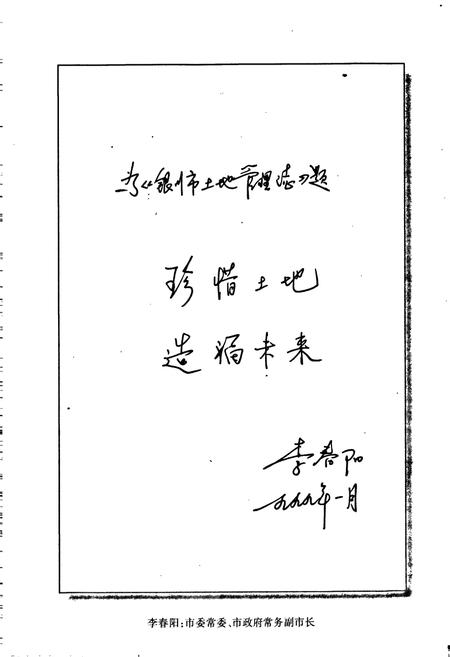 为《银川市土地管理志》题
珍惜土地
造福未来
李春阳
一九九九年一月
李春阳:市委常委、市政府常务副市长